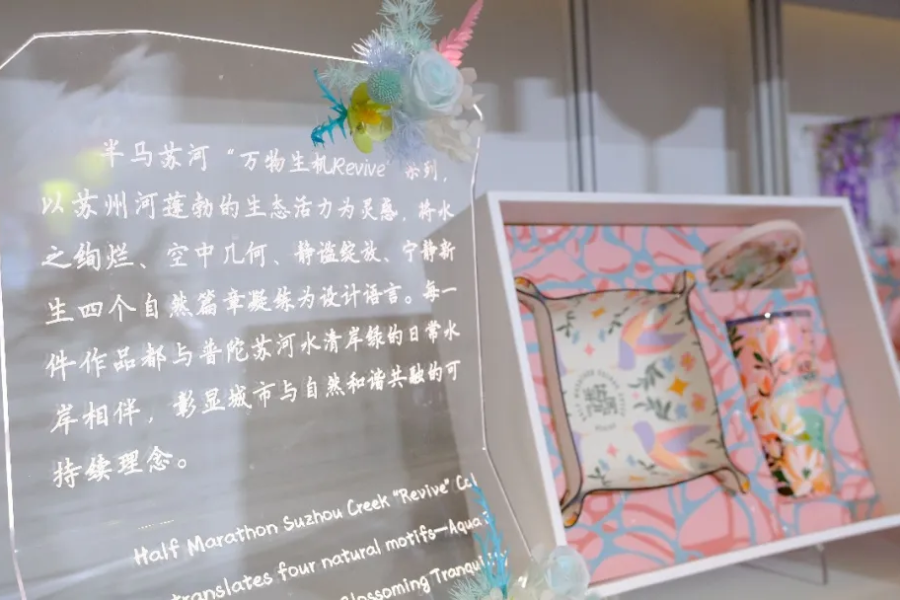 半马苏河“万物生机Revive”系列，
以苏州河蓬勃的生态活力为灵感，将水
之绚烂、空中几何、静谧绽放、宁静新
生四个自然篇章凝练为设计语言。每一
件作品都与普陀苏河水清岸绿的日常水
岸相伴，彰显城市与自然和谐共融的可
持续理念。
Half Marathon Suzhou Creek “Revive” Col
translates four natural motifs—Aqua
Blossoming Tranqui